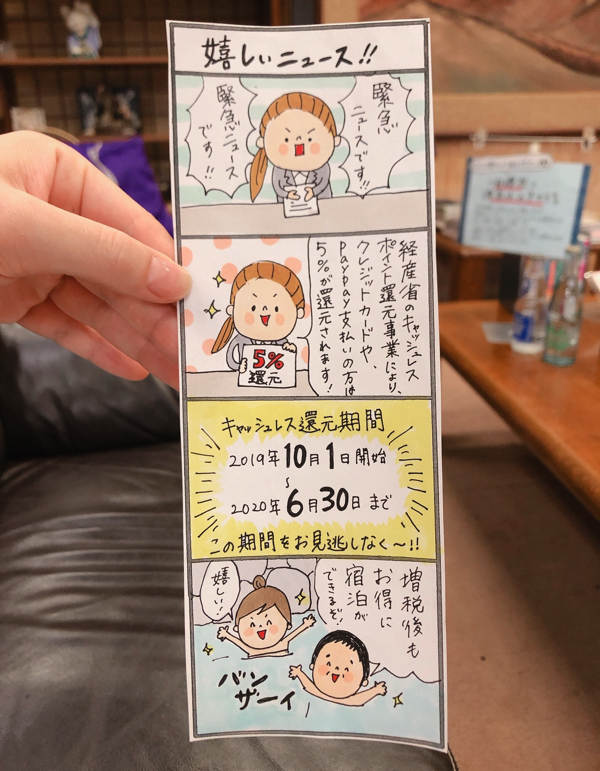 嬉しいニュース!!
緊急
ニュースです!!
緊急ニュース
です!!
経産省のキャッシュレス
ポイント還元事業により、
クレジットカードや、
PayPay支払いの方は
5%が還元されます!
5%
還元
キャッシュレス還元期間
2019年10月1日開始
~
2020年6月30日まで
この期間をお見逃しなく~!!
増税後も
お得に
宿泊が
できるぞ!
嬉しい!
バン
ザーイ